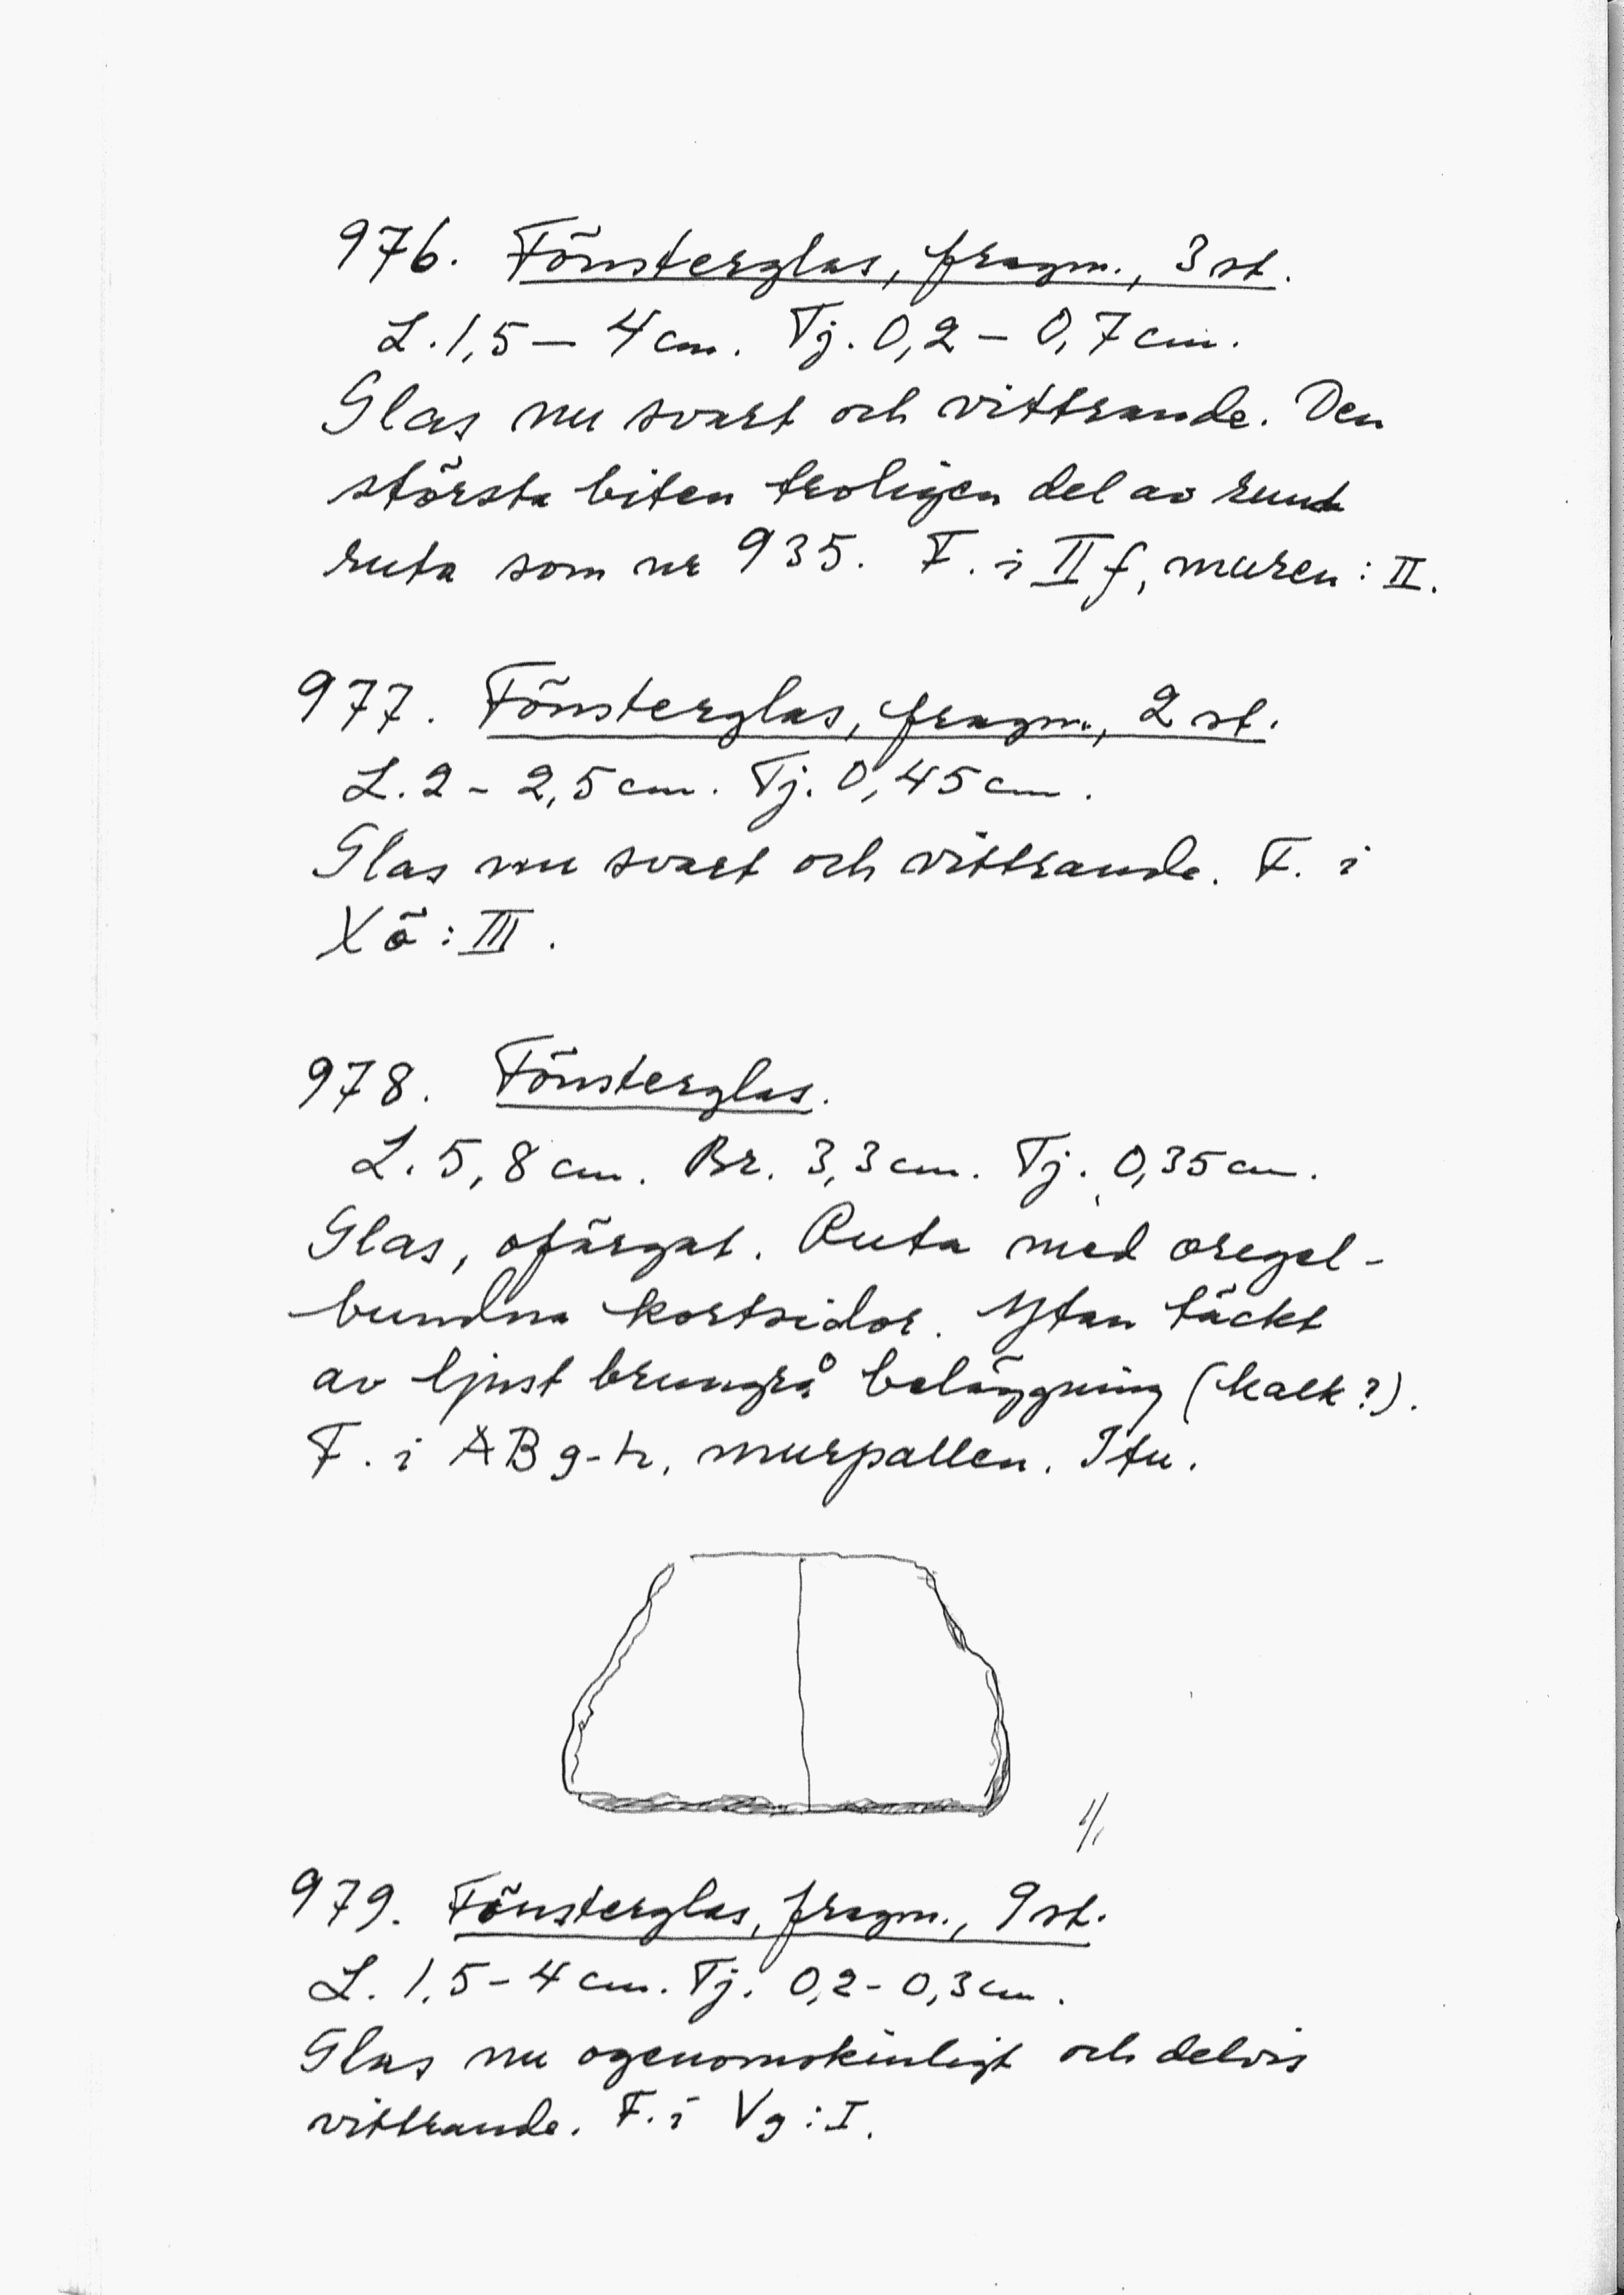 976. Fönsterglas, fragm., 3 st.
L. 1,5 – 4 cm. Tj. 0,2 – 0,7 cm.
Glas nu svart och vittrande. Den
största biten troligen del av rund
ruta som nr 935. F. i II f, muren : II.
977. Fönsterglas, fragm., 2 st.
L. 2 - 2,5 cm. Tj. 0,45 cm.
Glas nu svart och vittrande. F. i
X ö : III.
978. Fönsterglas.
L. 5,8 cm. Br. 3,3 cm. Tj. 0,35 cm.
Glas, ofärgat. Ruta med oregel-
bundna kortsidor. Ytan täckt
av ljust brungrå beläggning (kalk?).
F. i ABg-h, murpallen. Itu.
1/1
979. Fönsterglas, fragm., 9 st.
L. 1,5 - 4 cm. Tj. 0,2 - 0,3 cm.
Glas nu ogenomskinligt och delvis
vittrande. F. i Vg : I.